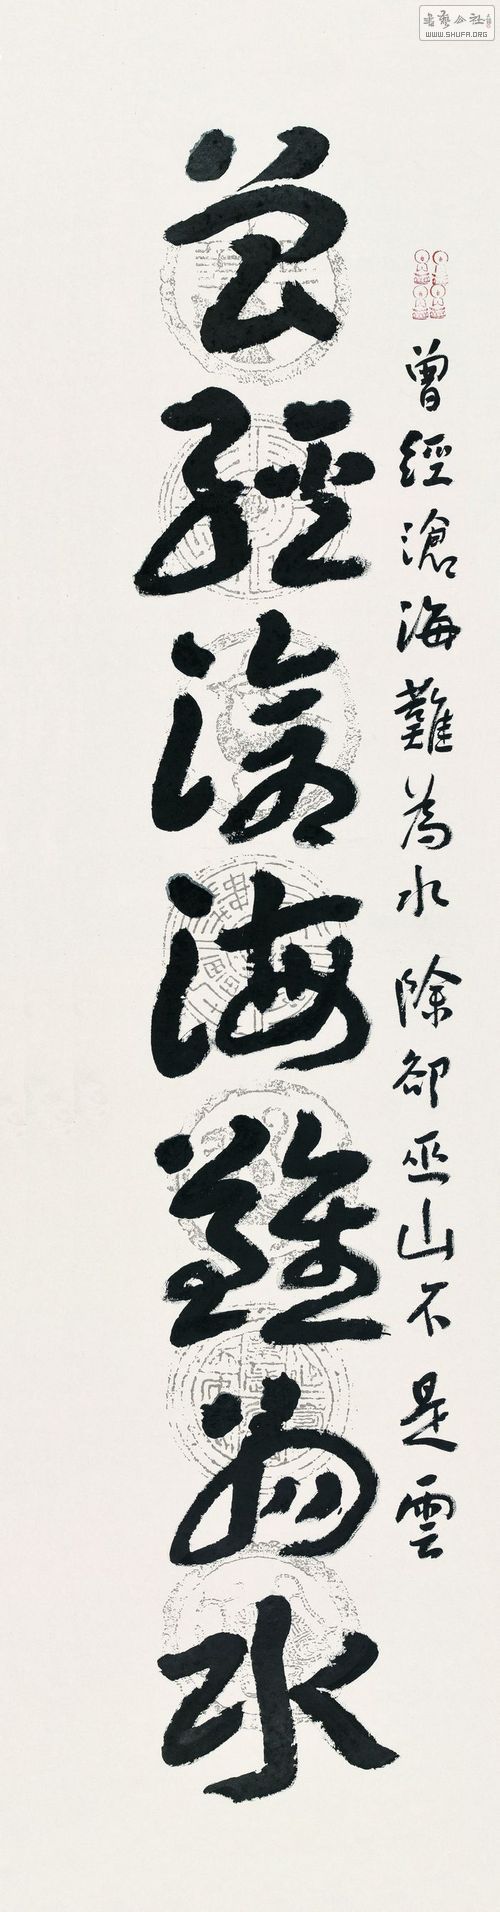 書藝公社
WWW.SHUFA.ORG
曾經滄海難為水 除卻巫山不是雲
曾經滄海難為水